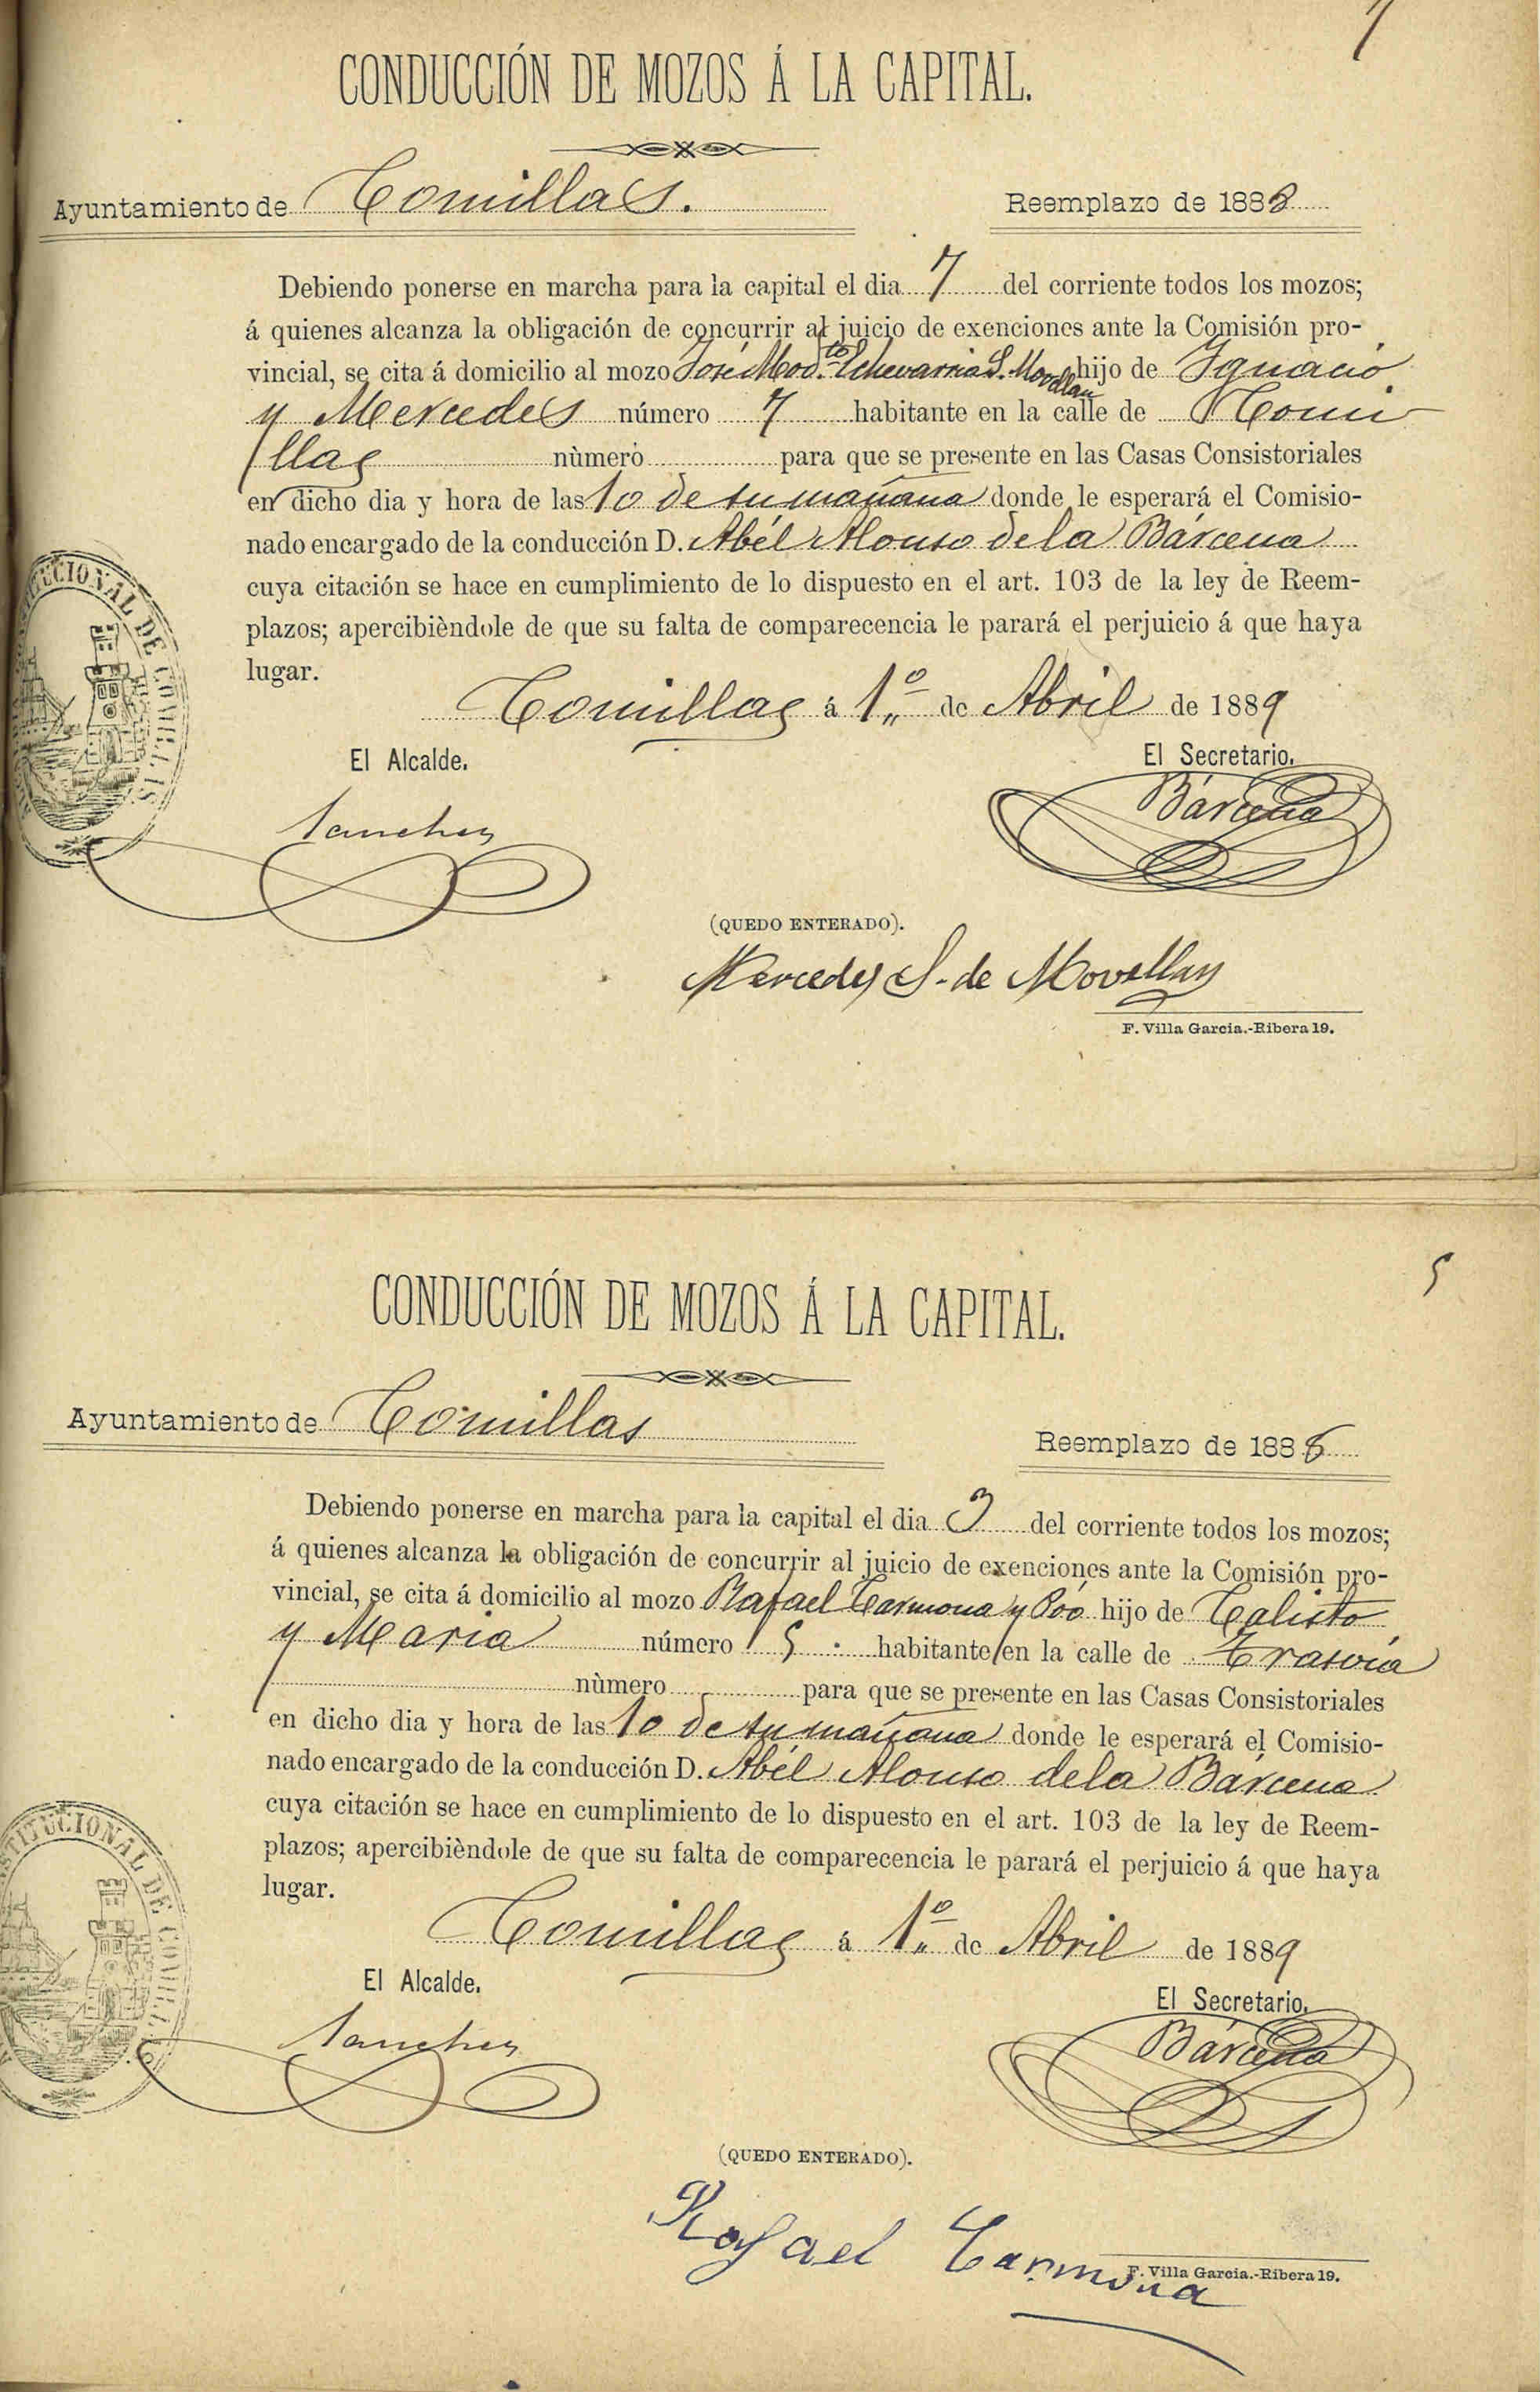 7
CONDUCCIÓN DE MOZOS Á LA CAPITAL.
Ayuntamiento de Comillas. Reemplazo de 1888
Debiendo ponerse en marcha para la capital el dia 7 del corriente todos los mozos;
á quienes alcanza la obligación de concurrir al juicio de exenciones ante la Comisión pro-
vincial, se cita á domicilio al mozo José Mod.to Echevarria S. Movellan hijo de Ignacio
y Mercedes número 7 habitante en la calle de Comi
llas nùmero para que se presente en las Casas Consistoriales
en dicho dia y hora de las 10 de su mañana donde le esperará el Comisio-
nado encargado de la conducción D. Abél Alonso de la Bárcena
cuya citación se hace en cumplimiento de lo dispuesto en el art. 103 de la ley de Reem-
plazos; apercibièndole de que su falta de comparecencia le parará el perjuicio á que haya
lugar.
Comillas á 1.º de Abril de 1889
El Alcalde. El Secretario.
Sanchez Bárcena
(QUEDO ENTERADO).
Mercedes S. de Movellan
F. Villa Garcia.-Ribera 19.
5
CONDUCCIÓN DE MOZOS Á LA CAPITAL.
Ayuntamiento de Comillas Reemplazo de 1886
Debiendo ponerse en marcha para la capital el dia del corriente todos los mozos;
á quienes alcanza la obligación de concurrir al juicio de exenciones ante la Comisión pro-
vincial, se cita á domicilio al mozo Rafael Carmona y Póo hijo de Calisto
y Maria número 5 habitante en la calle de Trasvia
nùmero para que se presente en las Casas Consistoriales
en dicho dia y hora de las 10 de su mañana donde le esperará el Comisio-
nado encargado de la conducción D. Abél Alonso de la Bárcena
cuya citación se hace en cumplimiento de lo dispuesto en el art. 103 de la ley de Reem-
plazos; apercibièndole de que su falta de comparecencia le parará el perjuicio á que haya
lugar.
Comillas á 1.º de Abril de 1889
El Alcalde. El Secretario.
Sanchez Bárcena
(QUEDO ENTERADO).
Rafael Carmona
F. Villa Garcia.-Ribera 19.